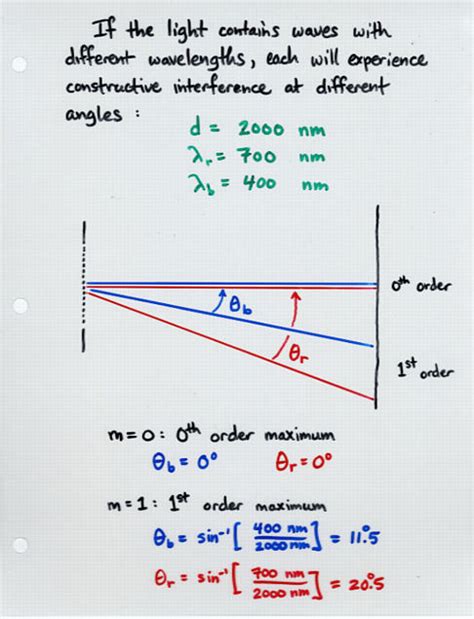 If the light contains waves with
different wavelengths, each will experience
constructive interference at different
angles :
d = 2000 nm
λr = 700 nm
λb = 400 nm
0th order
θb
θr
1st order
m=0: 0th order maximum
θb = 0° θr = 0°
m=1: 1st order maximum
θb = sin⁻¹[ 400 nm / 2000 nm ] = 11.5°
θr = sin⁻¹[ 700 nm / 2000 nm ] = 20.5°